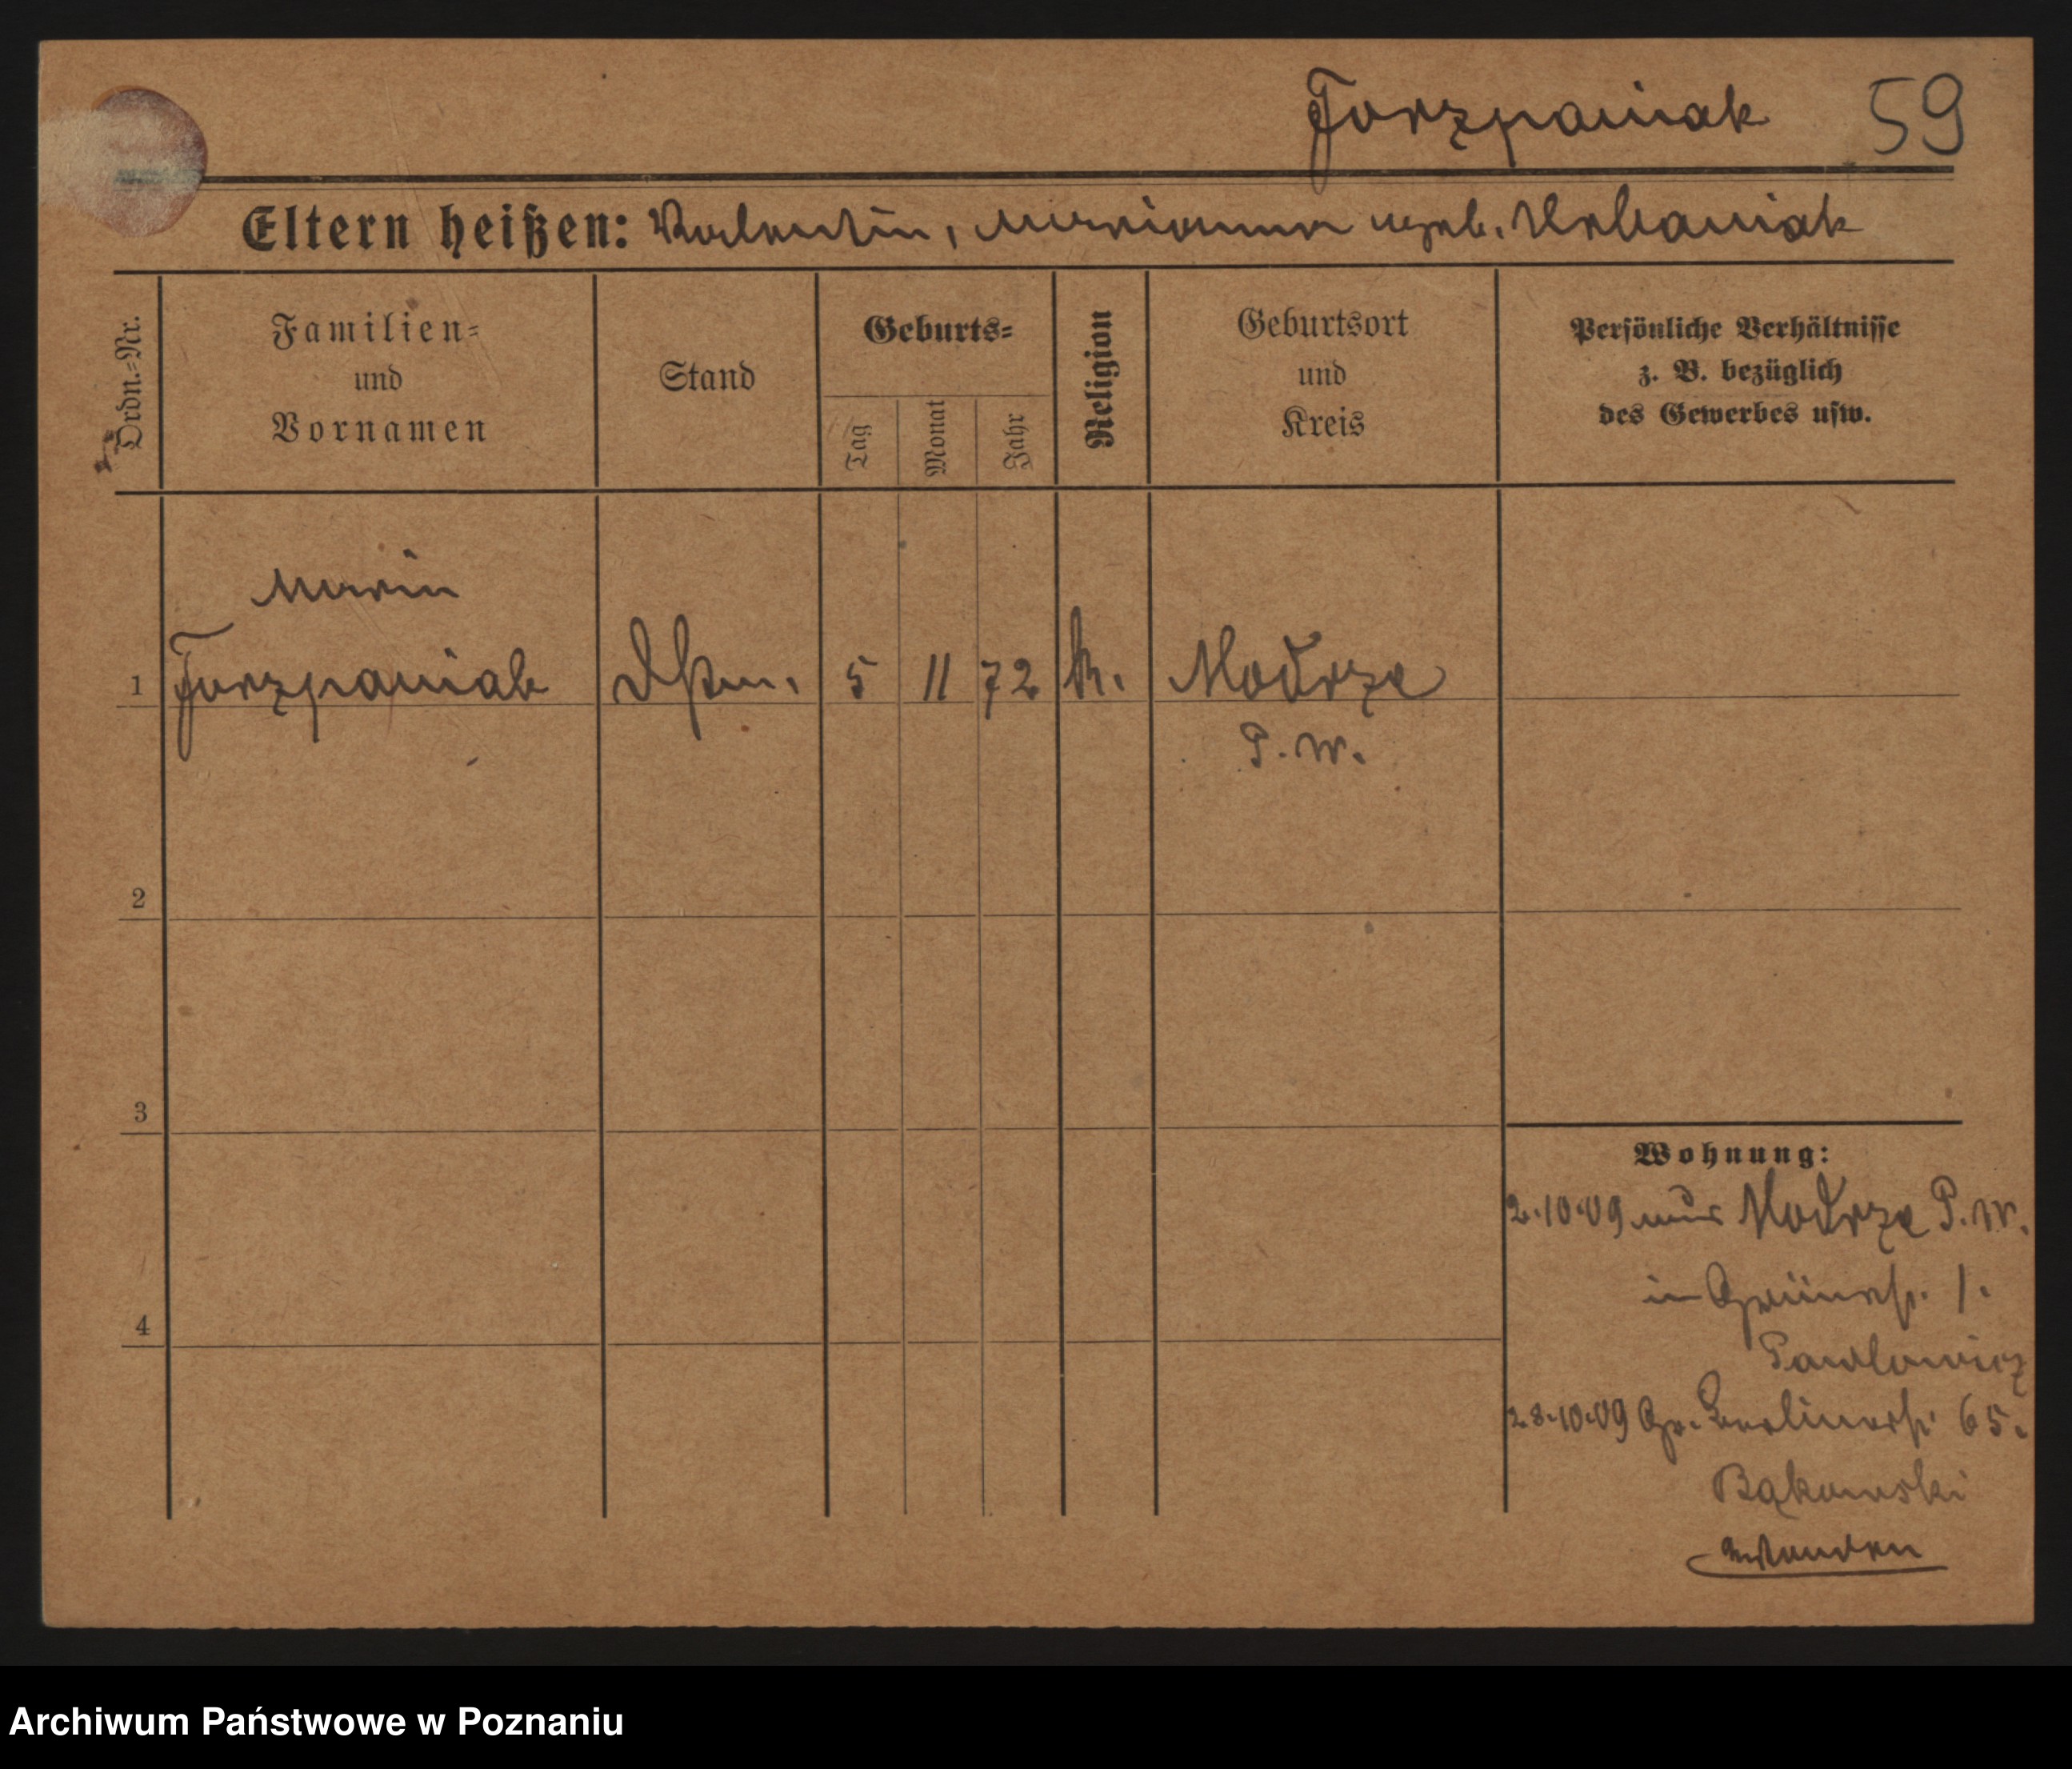 Jorzpaniak 59
Eltern heißen: Valentin, Marianna geb. Urbaniak
Ordn.-Nr.
Familien-
und
Vornamen
Stand
Geburts-
Tag
Monat
Jahr
Religion
Geburtsort
und
Kreis
Persönliche Verhältnisse
z. B. bezüglich
des Gewerbes usw.
Maria
1 Jorzpaniak 5 11 72 k. Modrze
P. W.
2
3
4
Wohnung:
2.10.09 aus Modrze P. W.
in Grünestr. 1.
Pawlowicz
28.10.09 Gr. Berlinerstr. 65.
Bąkowski
Archiwum Państwowe w Poznaniu